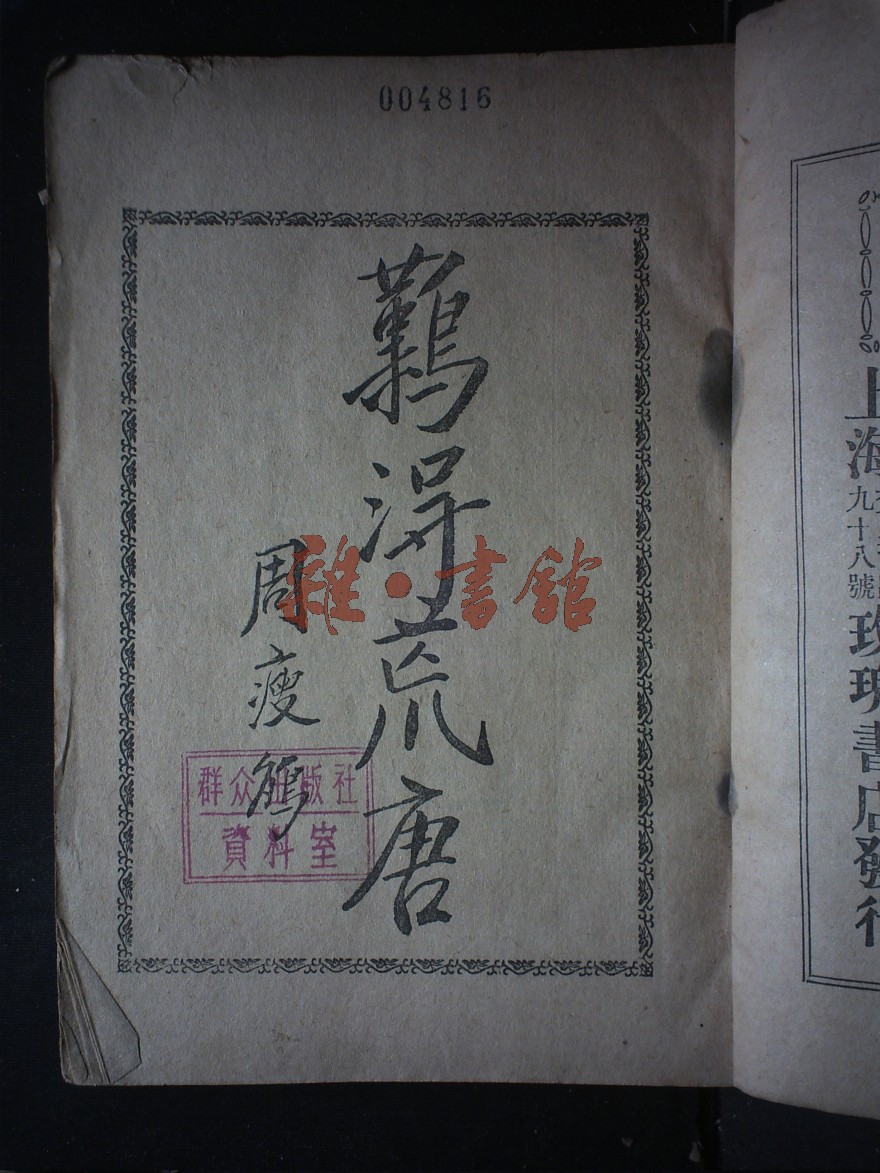 004816
難得荒唐
周瘦鵑
群众出版社
資料室
雜·書館
上海
九十八號
玫瑰書店發行